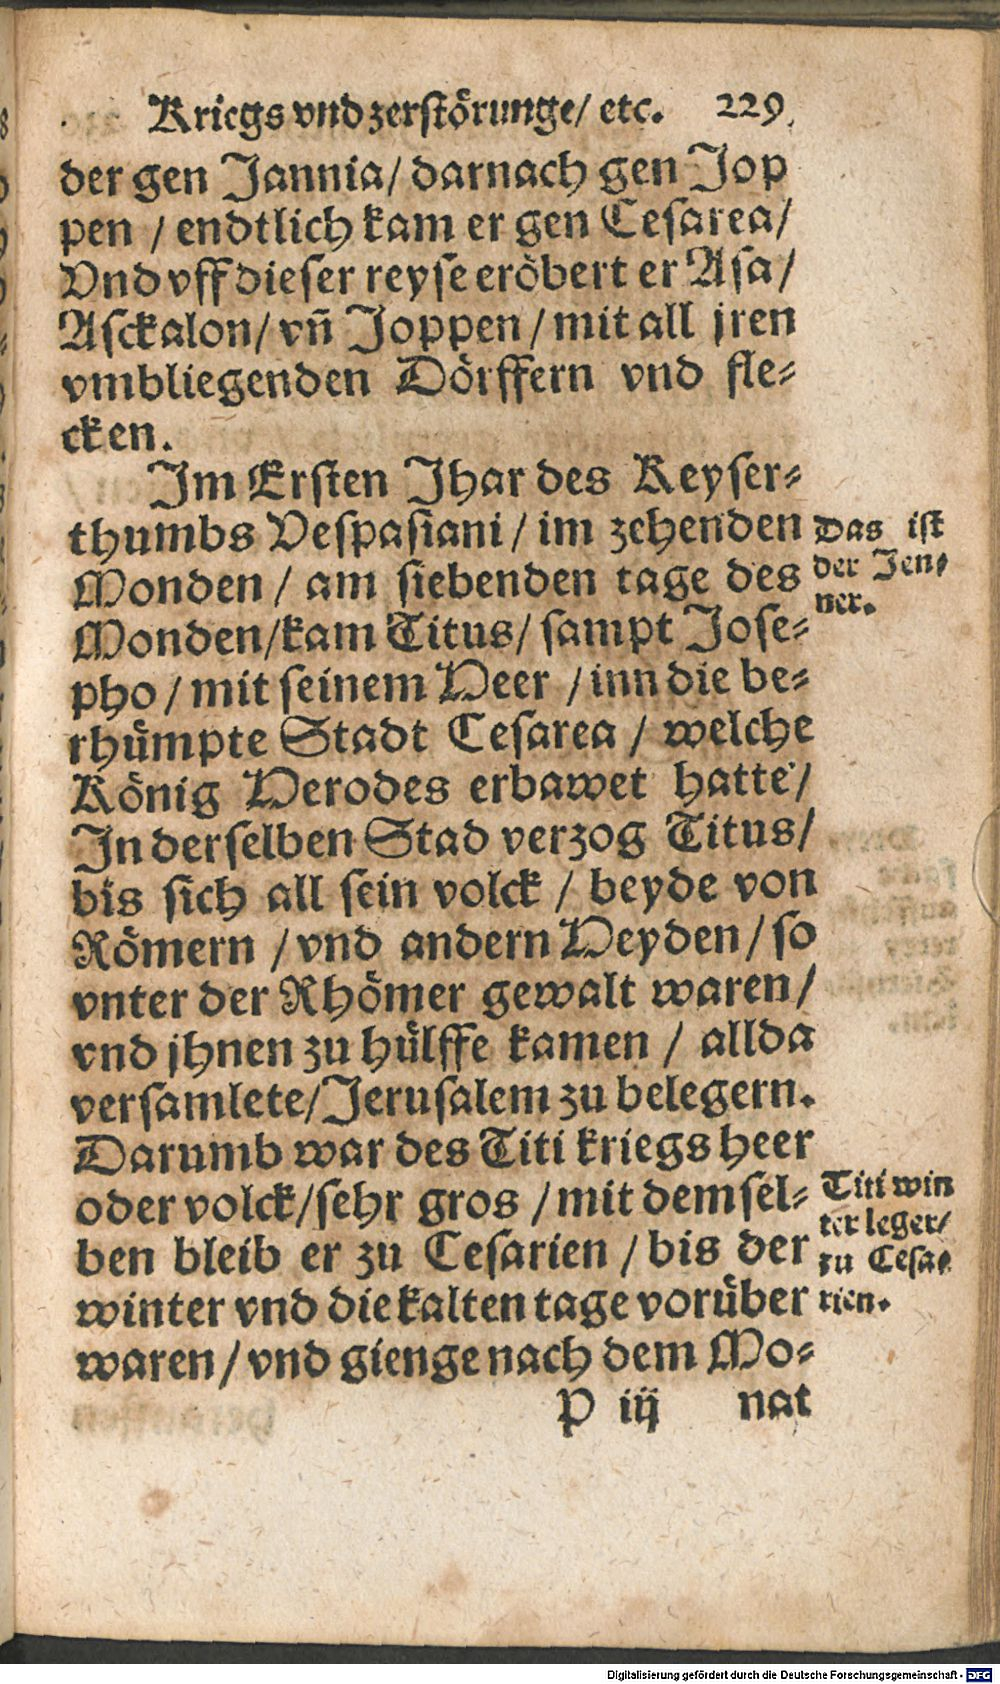 Kriegs vnd zerstörunge/ etc. 229
der gen Jannia/ darnach gen Jop
pen / endtlich kam er gen Cesarea/
Vnd vff dieser reyse eröbert er Asa/
Asckalon/ vñ Joppen / mit all jren
vmbliegenden Dörffern vnd fle-
cken.
Im Ersten Jhar des Keyser-
thumbs Vespasiani / im zehenden
Monden / am siebenden tage des
Monden/kam Titus/ sampt Jose-
pho / mit seinem Heer / inn die be-
rhümpte Stadt Cesarea / welche
König Herodes erbawet hatte/
In derselben Stad verzog Titus/
bis sich all sein volck / beyde von
Römern / vnd andern Heyden / so
vnter der Rhömer gewalt waren/
vnd jhnen zu hülffe kamen / allda
versamlete/Jerusalem zu belegern.
Darumb war des Titi kriegs heer
oder volck/sehr gros / mit demsel-
ben bleib er zu Cesarien / bis der
winter vnd die kalten tage vorüber
waren / vnd gienge nach dem Mo-
P iij nat
Das ist
der Jen-
ner.
Titi win
ter leger/
zu Cesa-
rien.
Digitalisierung gefördert durch die Deutsche Forschungsgemeinschaft - DFG